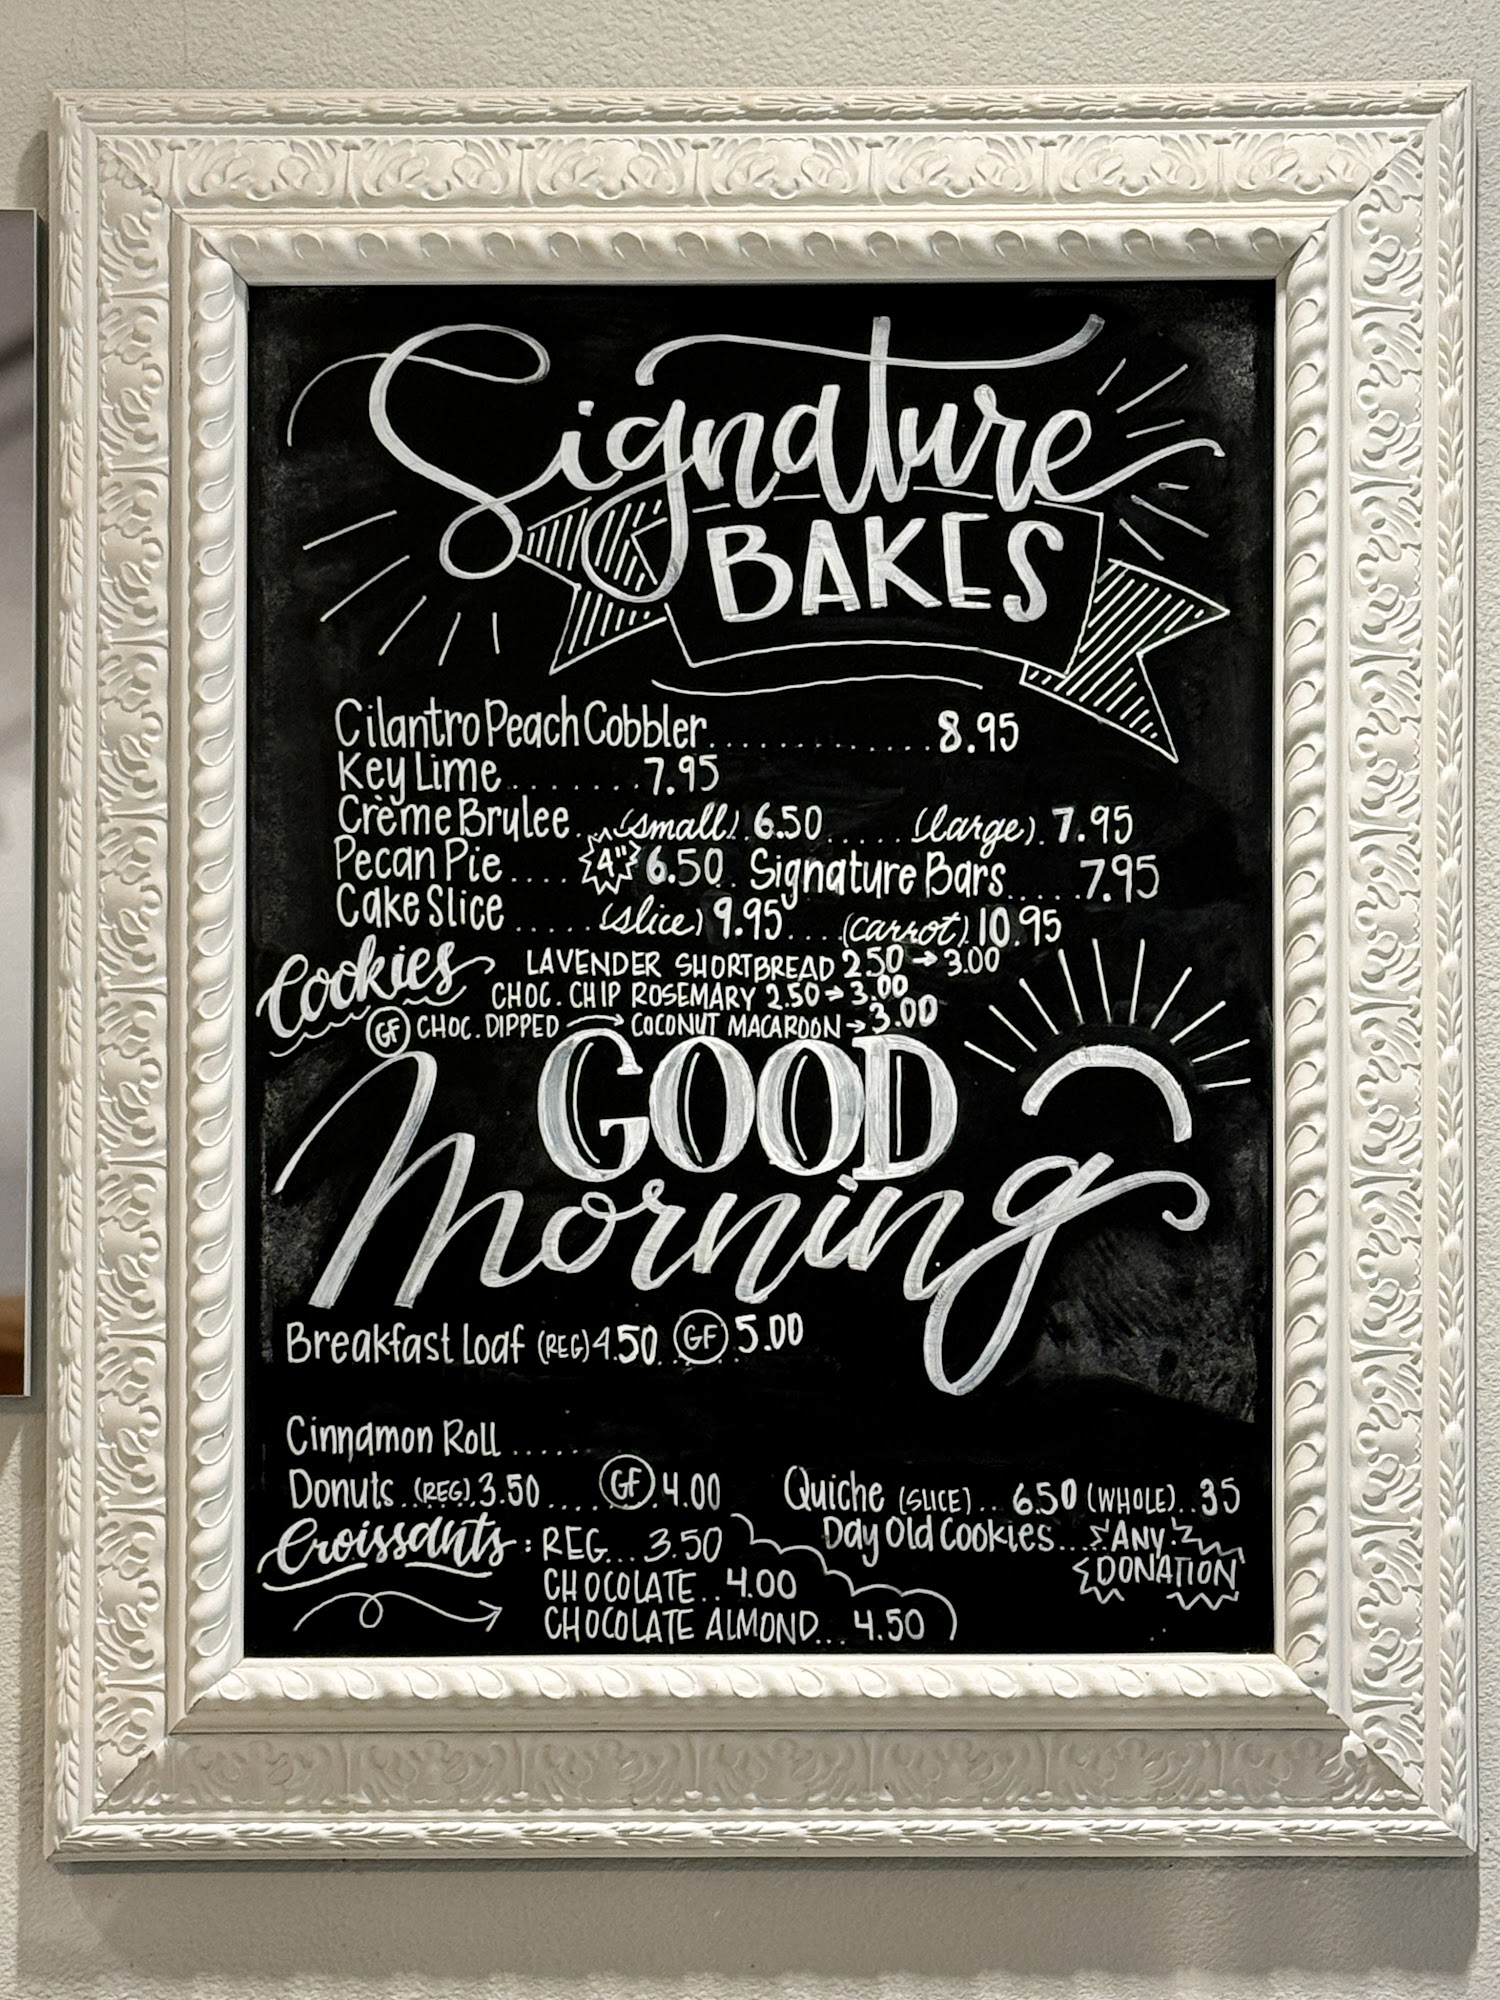 Signature
BAKES
Cilantro Peach Cobbler.............8.95
Key Lime........7.95
Crème Brulee...(small).6.50.....(large).7.95
Pecan Pie....4" 6.50. Signature Bars.....7.95
Cake Slice.....(slice) 9.95....(carrot).10.95
Cookies LAVENDER SHORTBREAD 2.50 → 3.00
CHOC. CHIP ROSEMARY 2.50 → 3.00
GF CHOC. DIPPED → COCONUT MACAROON → 3.00
GOOD
Morning
Breakfast Loaf (REG) 4.50..GF.5.00
Cinnamon Roll.....
Donuts..(REG).3.50.....GF.4.00
Quiche (SLICE)..6.50 (WHOLE)..35
Day Old Cookies...ANY
DONATION
Croissants: REG...3.50
CHOCOLATE..4.00
CHOCOLATE ALMOND...4.50